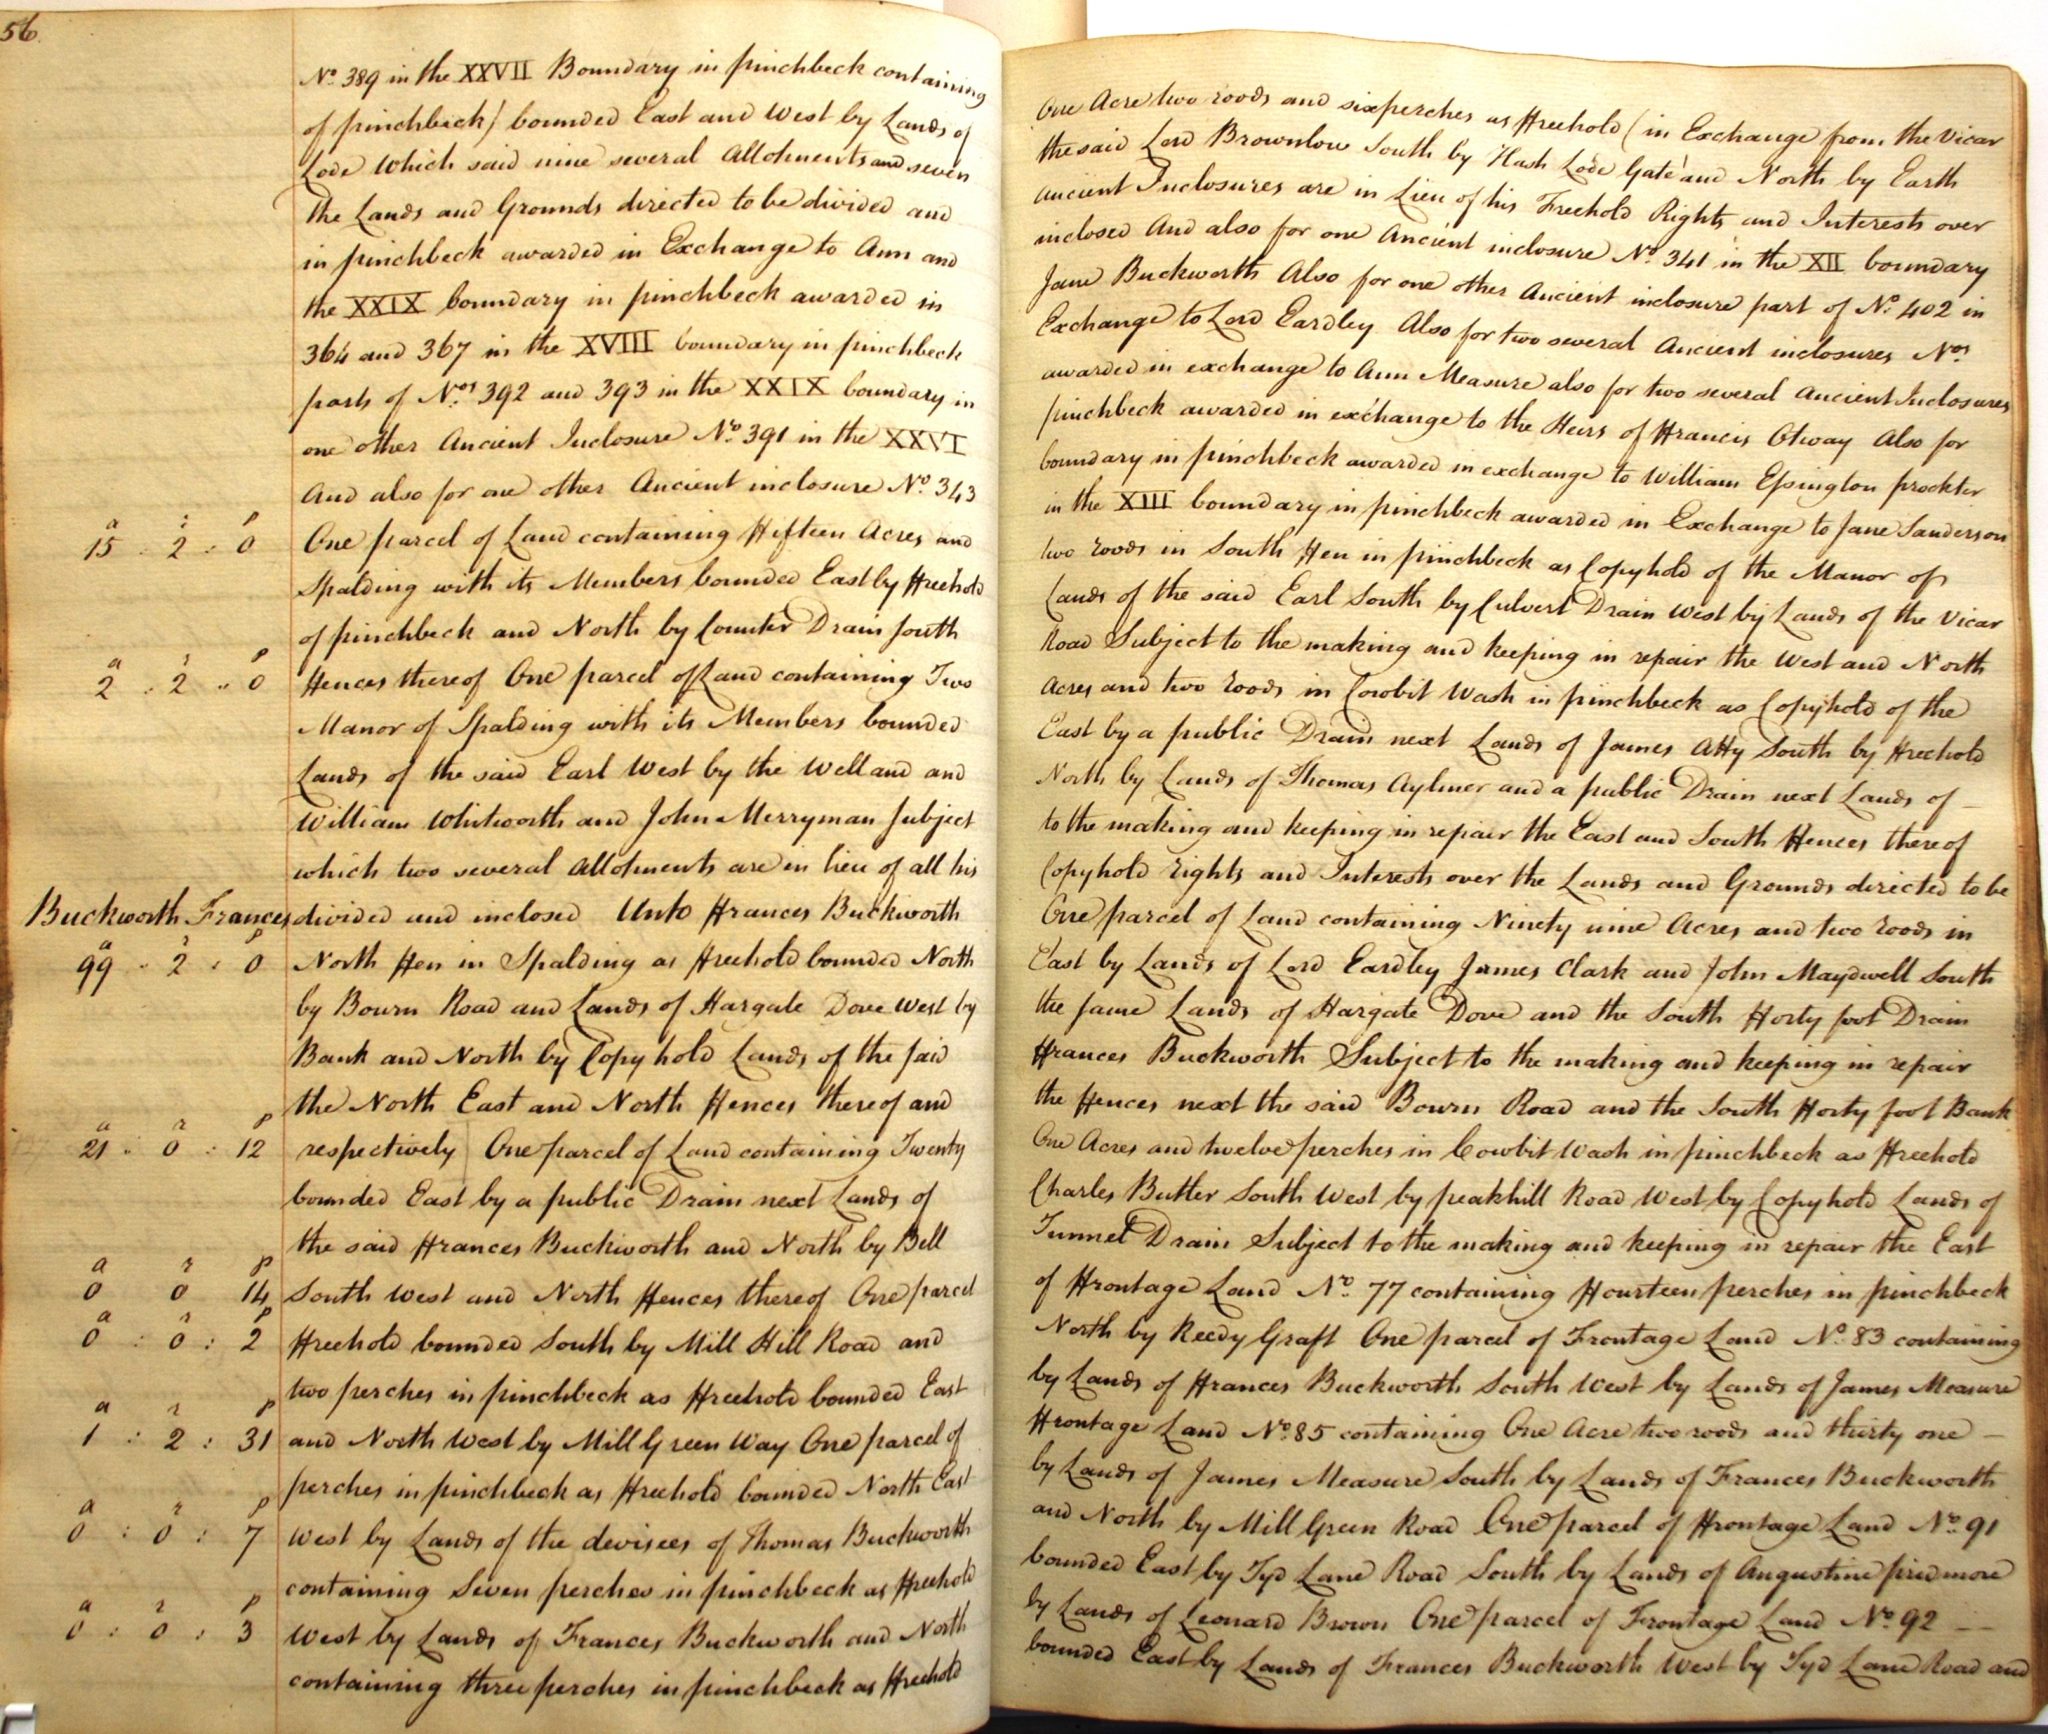 56.
No. 389 in the XXVII Boundary in pinchbeck containing One Acre two roods and six perches as Freehold (in Exchange from the Vicar
of pinchbeck) bounded East and West by Lands of the said Lord Brownlow South by Flash Lode Gate and North by Earth
Lode Which said nine several Allotments and seven ancient Inclosures are in Lieu of his Freehold Rights and Interests over
the Lands and Grounds directed to be divided and inclosed And also for one Ancient inclosure No. 341 in the XII boundary
in pinchbeck awarded in Exchange to Ann and Jane Buckworth Also for one other Ancient inclosure part of No. 402 in
the XXIX boundary in pinchbeck awarded in Exchange to Lord Eardley Also for two several Ancient inclosures Nos.
364 and 367 in the XVIII boundary in pinchbeck awarded in exchange to Ann Measure also for two several Ancient Inclosures
parts of Nos. 392 and 393 in the XXIX boundary in pinchbeck awarded in exchange to the Heirs of Francis Otway Also for
one other Ancient Inclosure No. 391 in the XXVI boundary in pinchbeck awarded in exchange to William Essington prockter
And also for one other Ancient inclosure No. 343 in the XIII boundary in pinchbeck awarded in Exchange to Jane Sanderson
a r p
15 : 2 : 0 One parcel of Land containing Fifteen Acres and two roods in South Fen in pinchbeck as Copyhold of the Manor of
Spalding with its Members bounded East by Freehold Lands of the said Earl South by Culvert Drain West by Lands of the Vicar
of pinchbeck and North by Counter Drain South Road Subject to the making and keeping in repair the West and North
a r p
2 : 2 : 0 Fences thereof One parcel of Land containing Two Acres and two roods in Cowbit Wash in pinchbeck as Copyhold of the
Manor of Spalding with its Members bounded East by a public Drain next Lands of James Atty South by Freehold
Lands of the said Earl West by the Welland and North by Lands of Thomas Aylmer and a public Drain next Lands of
William Whitworth and John Merryman Subject to the making and keeping in repair the East and South Fences thereof
which two several Allotments are in lieu of all his Copyhold rights and Interests over the Lands and Grounds directed to be
Buckworth Frances divided and inclosed Unto Frances Buckworth One parcel of Land containing Ninety nine Acres and two roods in
a r p
99 : 2 : 0 North Fen in Spalding as Freehold bounded North East by Lands of Lord Eardley James Clark and John Maydwell South
by Bourn Road and Lands of Hargate Dove West by the same Lands of Hargate Dove and the South Forty foot Drain
Bank and North by Copyhold Lands of the said Frances Buckworth Subject to the making and keeping in repair
the North East and North Fences thereof and the Fences next the said Bourn Road and the South Forty foot Bank
a r p
21 : 0 : 12 respectively One parcel of Land containing Twenty One Acres and twelve perches in Cowbit Wash in pinchbeck as Freehold
bounded East by a public Drain next Lands of Charles Butler South West by peakhill Road West by Copyhold Lands of
the said Frances Buckworth and North by Bell Tunnel Drain Subject to the making and keeping in repair the East
a r p
0 0 14 South West and North Fences thereof One parcel of Frontage Land No. 77 containing Fourteen perches in pinchbeck
a r p
0 : 0 : 2 Freehold bounded South by Mill Hill Road and North by Reedy Graft One parcel of Frontage Land No. 83 containing
two perches in pinchbeck as Freehold bounded East by Lands of Frances Buckworth South West by Lands of James Measure
a r p
1 : 2 : 31 and North West by Mill Green Way One parcel of Frontage Land No. 85 containing One Acre two roods and thirty one
perches in pinchbeck as Freehold bounded North East by Lands of James Measure South by Lands of Frances Buckworth
a r p
0 : 0 : 7 West by Lands of the devisees of Thomas Buckworth and North by Mill Green Road One parcel of Frontage Land No. 91
containing Seven perches in pinchbeck as Freehold bounded East by Tyd Lane Road South by Lands of Augustine pridmore
a r p
0 : 0 : 3 West by Lands of Frances Buckworth and North by Lands of Leonard Brown One parcel of Frontage Land No. 92
containing three perches in pinchbeck as Freehold bounded East by Lands of Frances Buckworth West by Tyd Lane Road and